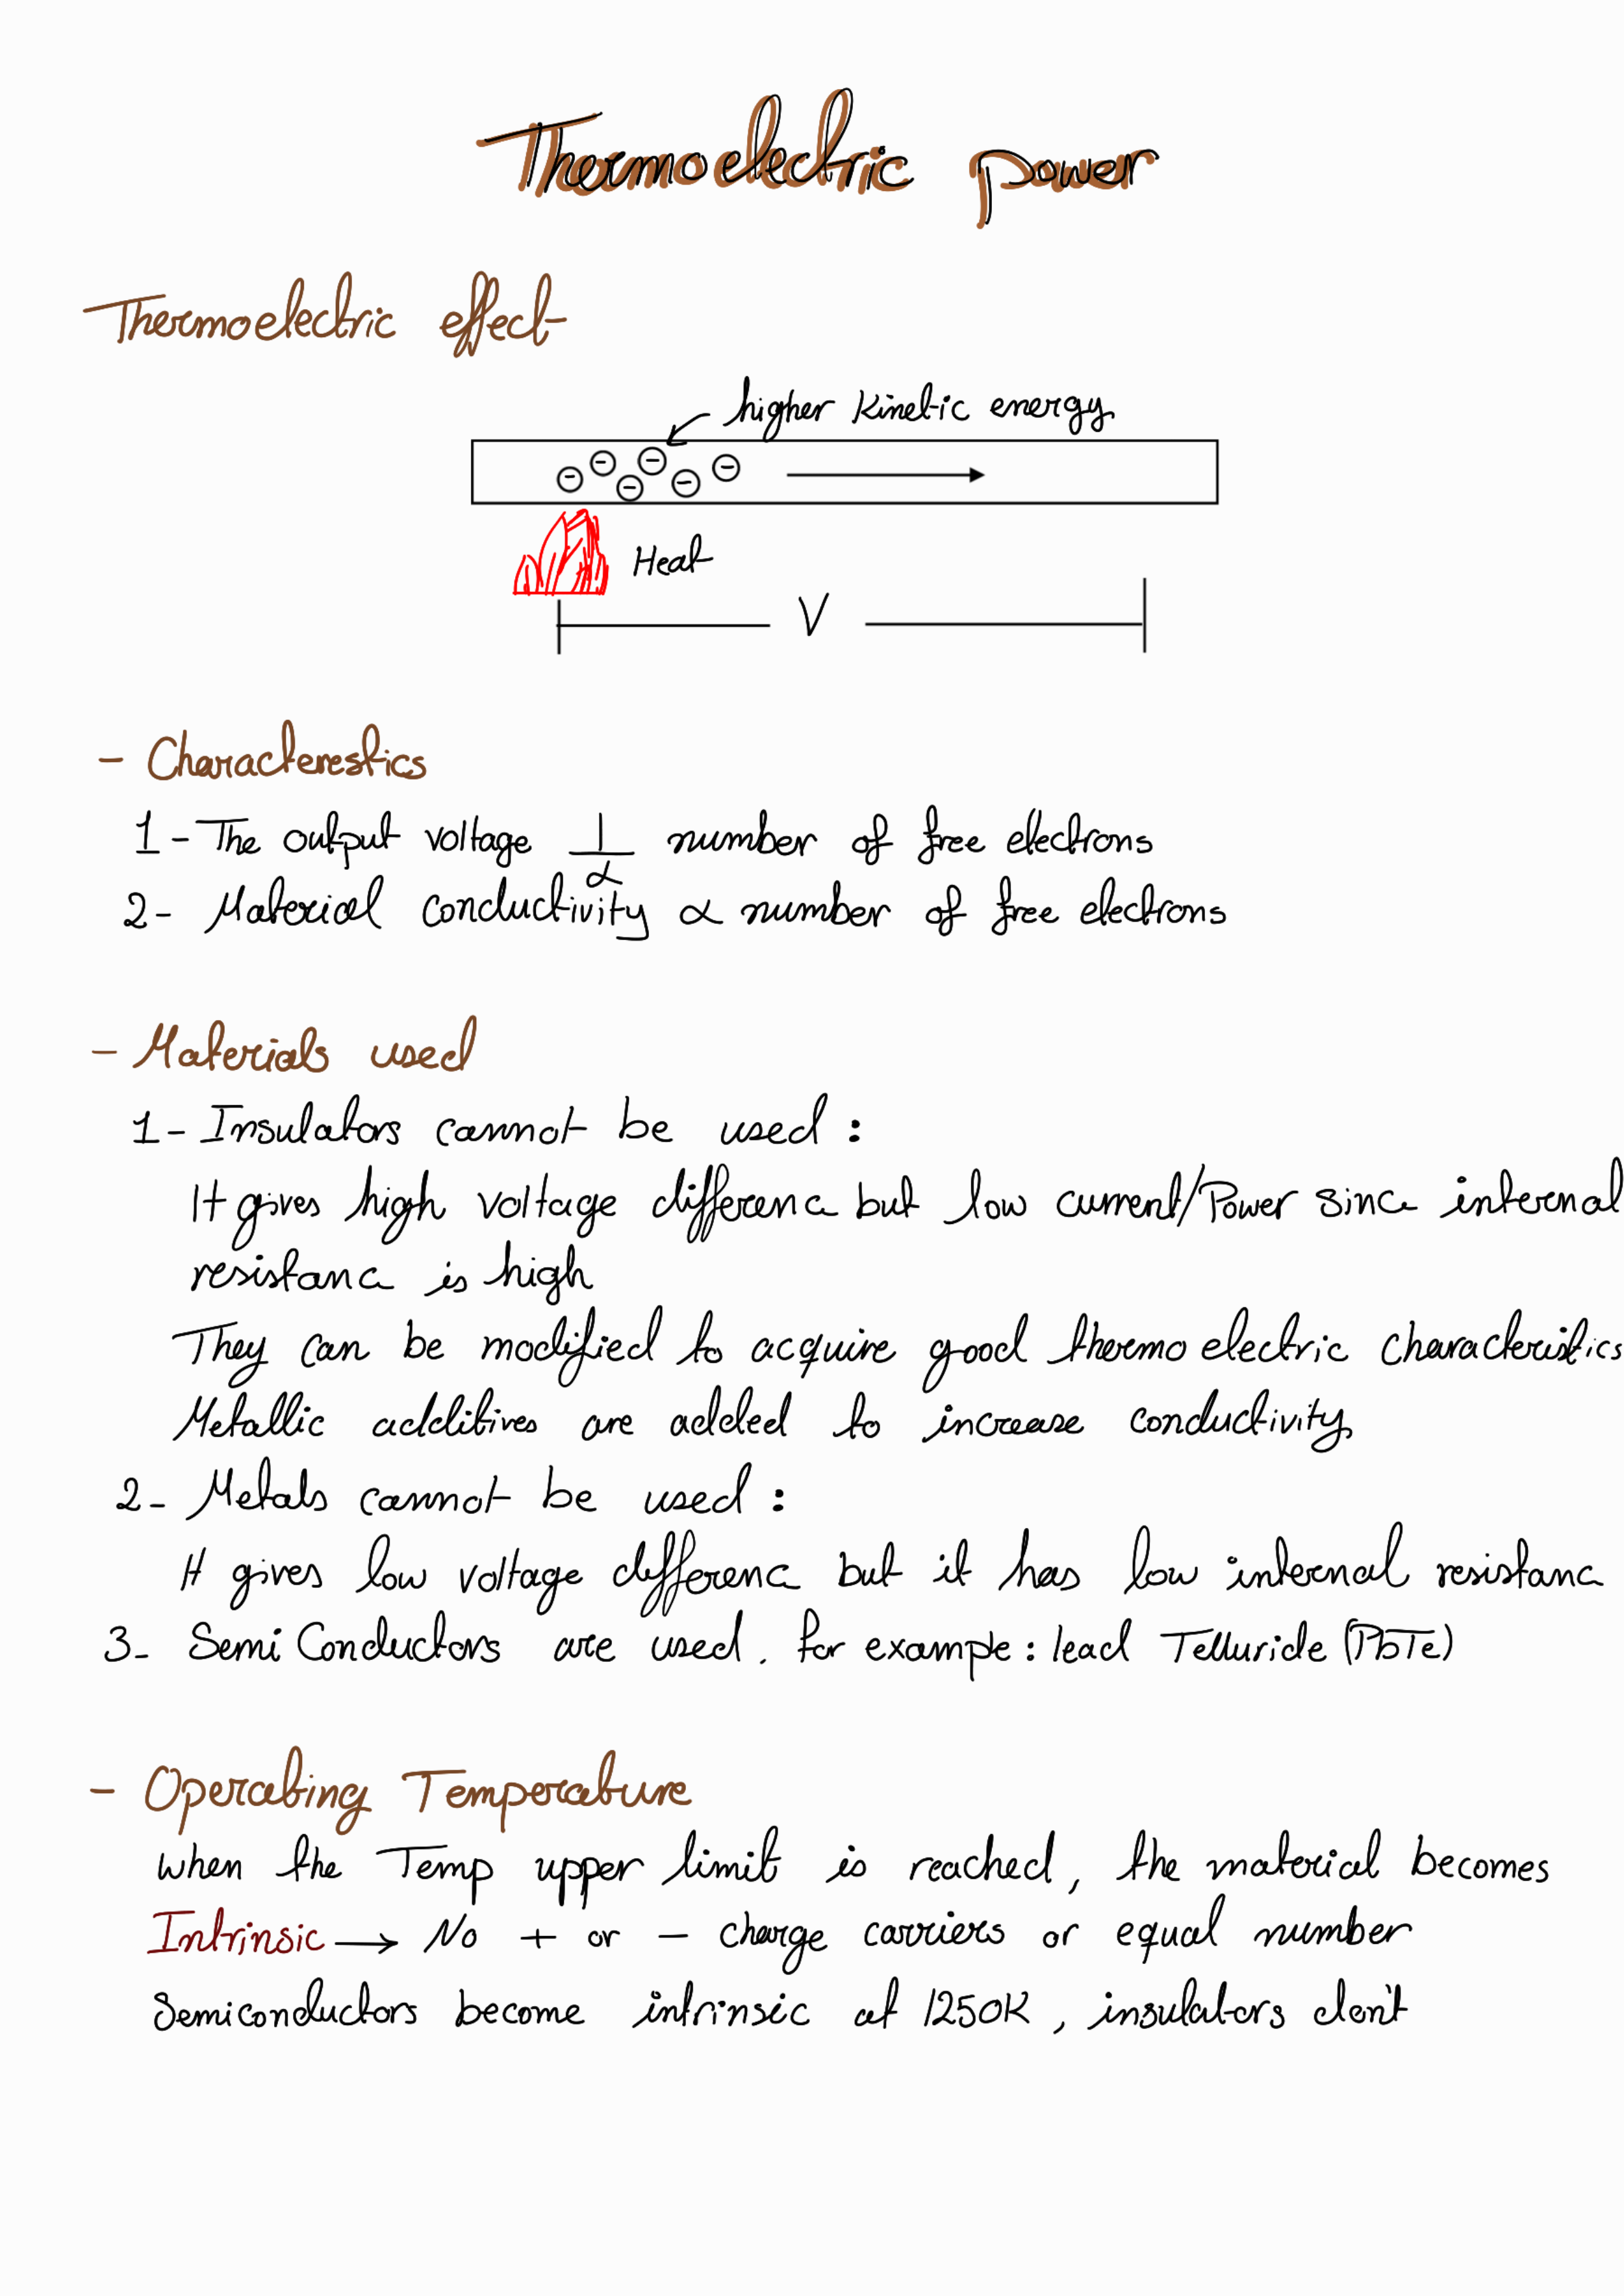 Thermoelectric power
Thermoelectric effect
higher Kinetic energy
Heat
V
- Characterestics
1 - The output voltage 1/α number of free electrons
2- Material conductivity α number of free electrons
- Materials used
1- Insulators cannot be used :
It gives high voltage differenc but low current/Power since internal
resistanc is high
They can be modified to acquire good thermo electric characteristics
Metallic additives are added to increase conductivity
2- Metals cannot be used :
It gives low voltage differenc but it has low internal resistanc
3- Semi Conductors are used. for example : lead Telluride (PbTe)
- Operating Temperature
when the Temp upper limit is reached, the material becomes
Intrinsic → No + or - charge carriers or equal number
Semiconductors become intrinsic at 1250K, insulators don't